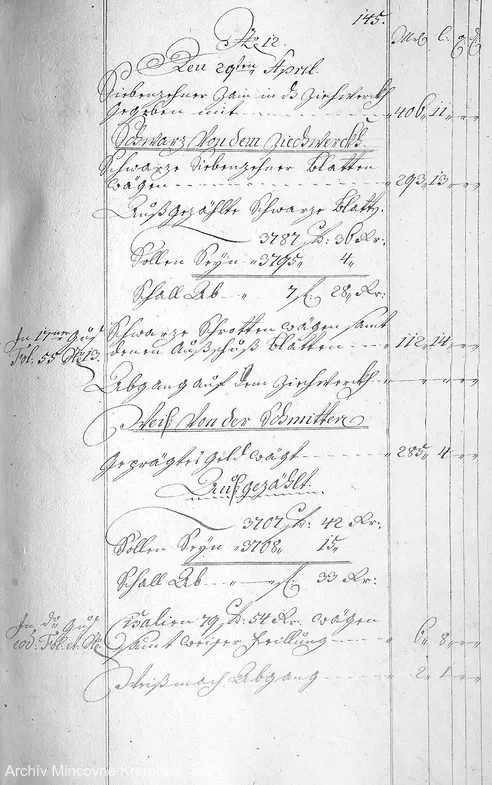 145.
No 12.
Den 29ten April.
M L q d
Siebenzehner Zain in das Ziehwerckh
gegeben mit - - - - " 406 " 11 " - " -
Schwarz Von dem Ziechwerckh
Schwarze Siebenzehner Blatten
wägen - - - - " 293 " 13 " - " -
Außgezählte Schwarze Blatt.
3787 fl: 36 Kr:
Sollen Seyn " 3795 " 4 "
Schall Ab - " 7 fl: 28 " Kr:
In 17ner Guß
Fol. 55 No 13.
Schwarze Schrotten wägen samt
denen Außschuß Blatten - - - " 112 " 14 " - " -
Abgang auf dem Ziehwerckh - " - " - " - " -
Weiß Von der Schmitten
Geprägtes Geld wägt - - - - " 285 " 4 " - " -
Außgezählt.
3707 fl: 42 Kr:
Sollen Seyn " 3708 " 15 "
Schall Ab - " - " fl: 33 Kr:
In Guß
eod: Fol: et No
Cisalien 79 fl: 54 Kr: wägen
samt weiser Feillung - - - " 6 " 8 " - " -
Weißmach Abgang - - - - " 2 " 1 " - " -
Archiv Mincovne Kremnica